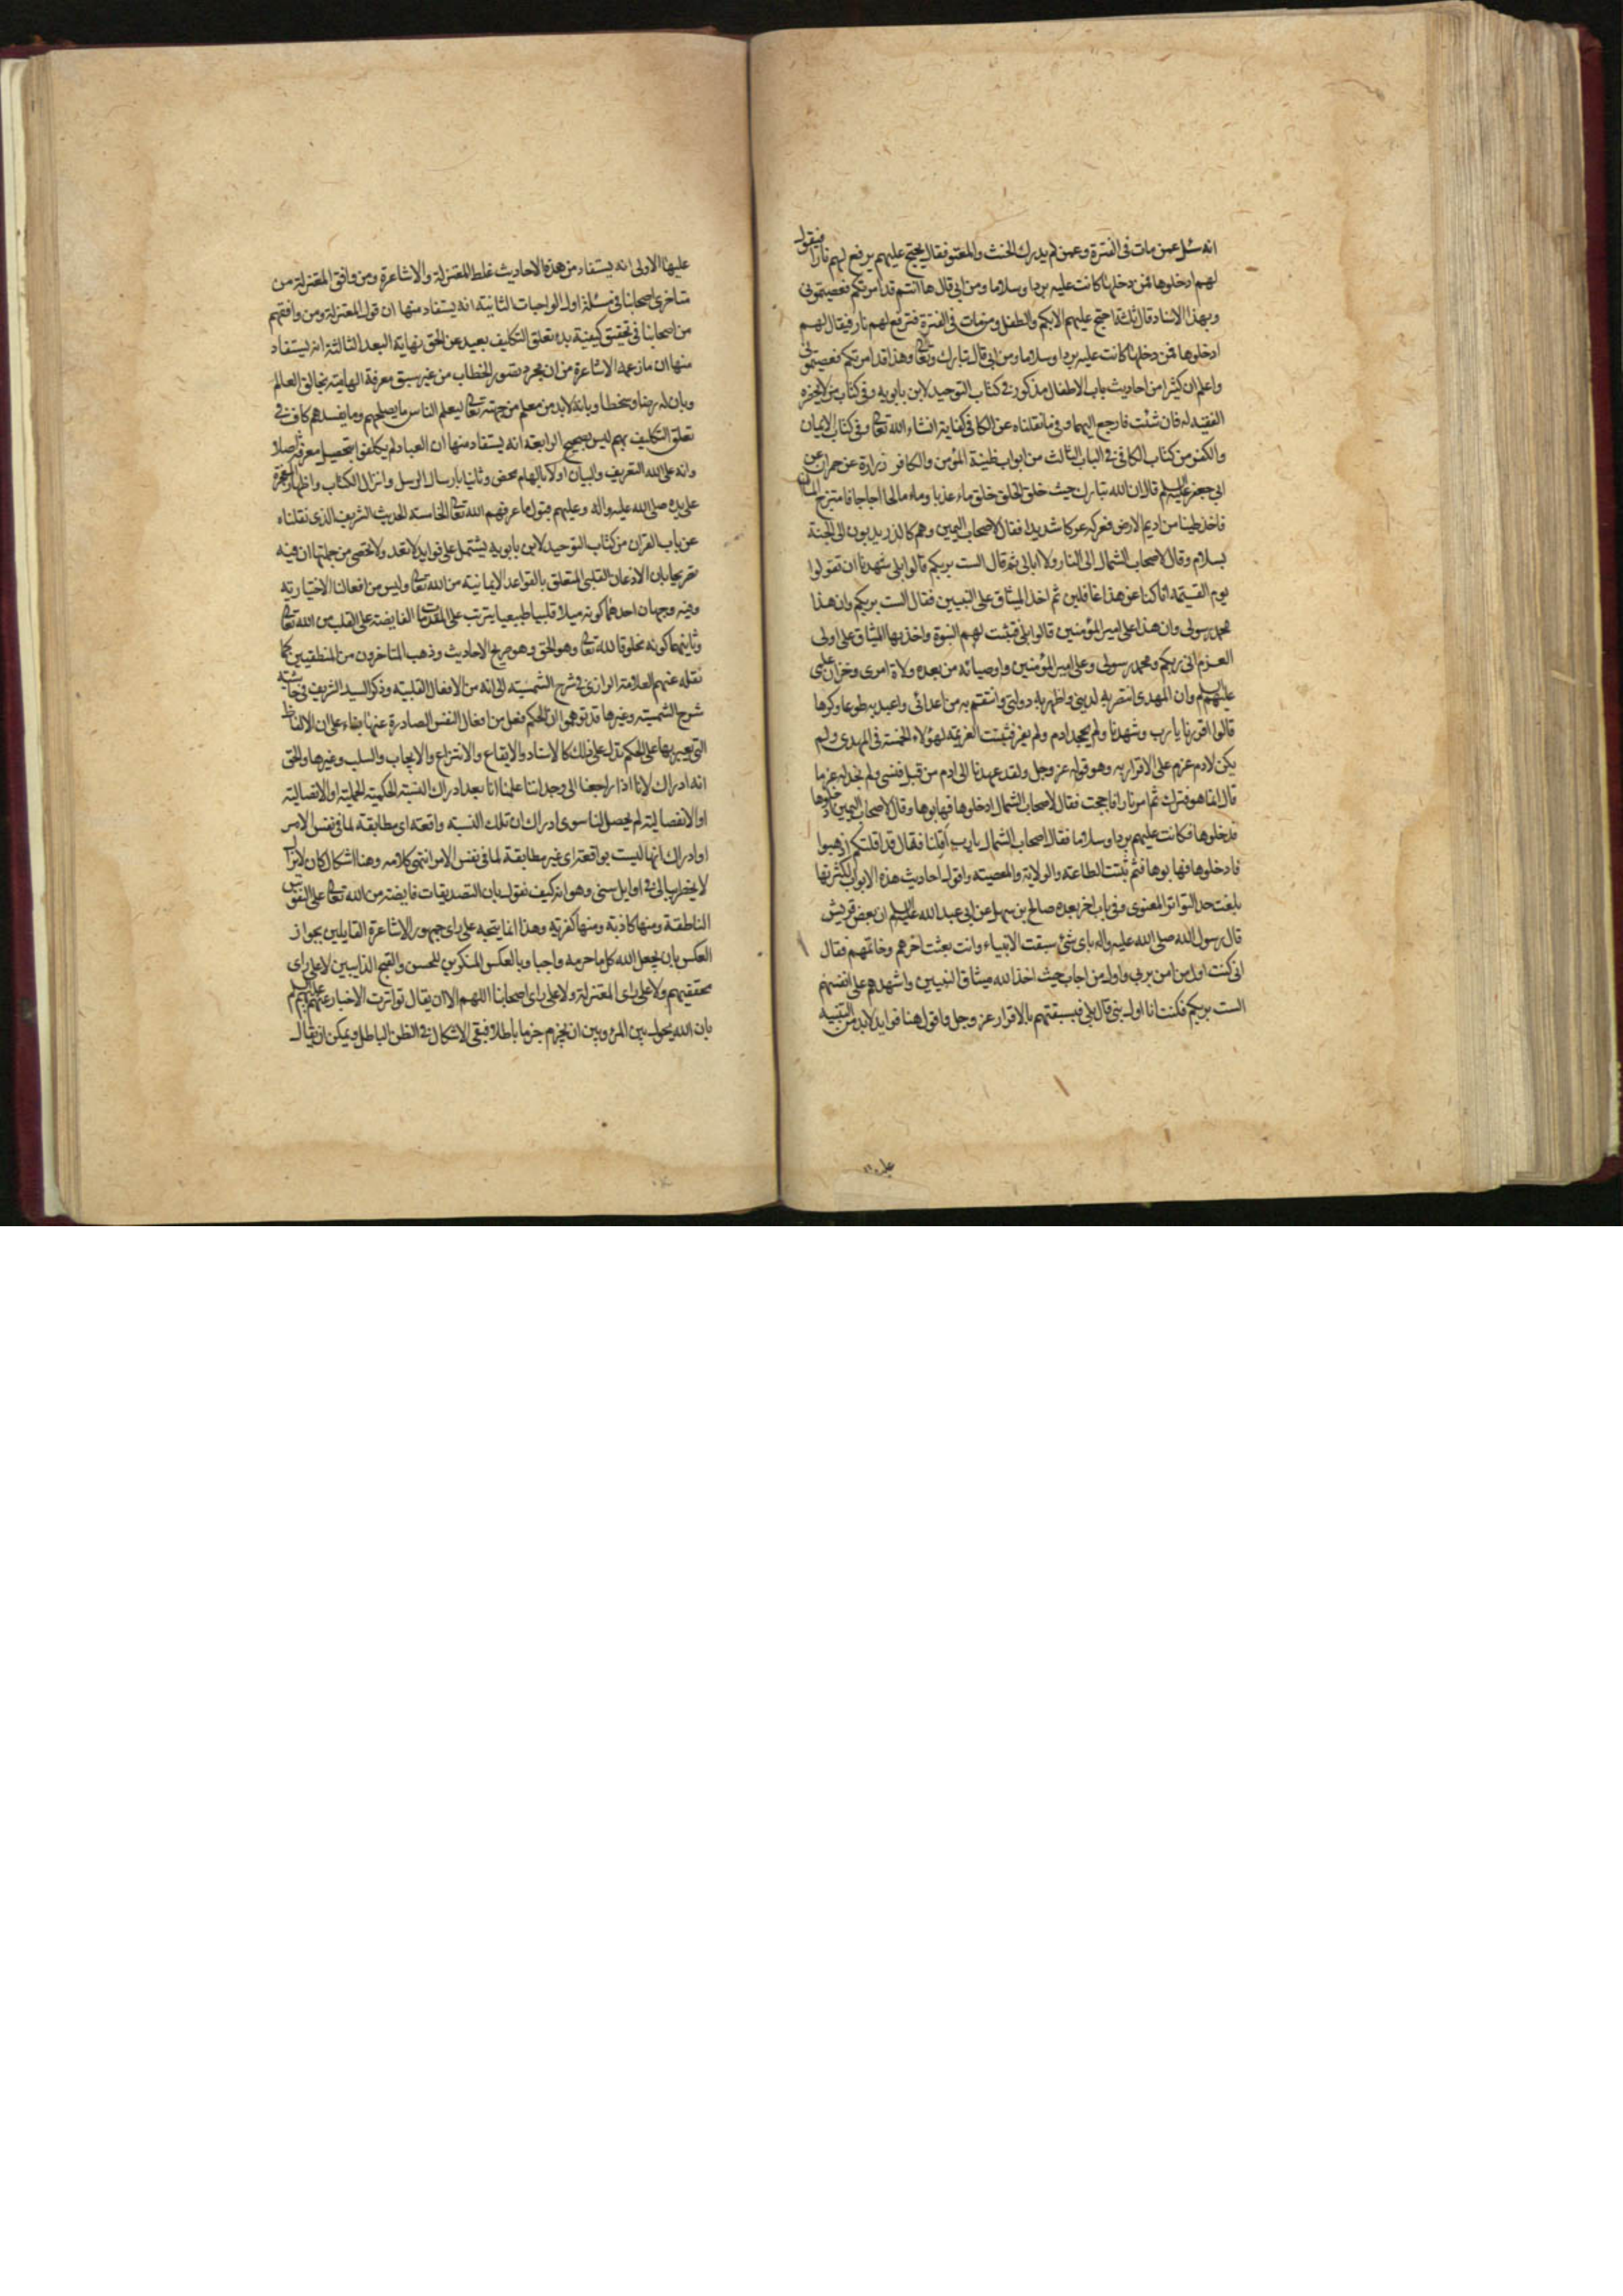 انه سئل عمن مات فى الفترة وعمن لم يدرك الحنث والمعتوه فقال يحتج عليهم يرفع لهم نارا فيقول
لهم ادخلوها فمن دخلها كانت عليه بردا وسلاما ومن ابى قال ها انتم قد امرتكم فعصيتمونى
وبهذا الاسناد قال ثلثة يحتج عليهم الابكم والطفل ومن مات فى الفترة فترفع لهم نار فيقال لهم
ادخلوها فمن دخلها كانت عليه بردا وسلاما ومن ابى قال تبارك وتعالى هذا قد امرتكم فعصيتمونى
واعلم ان كثيرا من احاديث باب الاطفال مذكور فى كتاب التوحيد لابن بابويه وفى كتاب من لا يحضره
الفقيه له فان شئت فارجع اليهما وفى ما نقلناه عن الكافى كفاية انشاء الله تعالى وفى كتاب الايمان
والكفر من كتاب الكافى فى الباب الثالث من ابواب طينة المؤمن والكافر زرارة عن حمران عن
ابى جعفر عليه السلم قال ان الله تبارك حيث خلق الخلق خلق ماء عذبا وماء مالحا اجاجا فامتزج الماآن
فاخذ طينا من اديم الارض فعركه عركا شديدا فقال لاصحاب اليمين وهم كالذر يدبون الى الجنة
بسلام وقال لاصحاب الشمال الى النار ولا ابالى ثم قال الست بربكم قالوا بلى شهدنا ان تقولوا
يوم القيمة انا كنا عن هذا غافلين ثم اخذ الميثاق على النبيين فقال الست بربكم وان هذا
محمد رسولى وان هذا على امير المؤمنين قالوا بلى فثبتت لهم النبوة واخذ بها الميثاق على اولى
العزم انى ربكم ومحمد رسولى وعلى امير المؤمنين واوصيائه من بعده ولاة امرى وخزان علمى
عليهم السلم وان المهدى انتصر به لدينى واظهر به دولتى وانتقم به من اعدائى واعبد به طوعا وكرها
قالوا اقررنا يا رب وشهدنا ولم يجحد ادم ولم يقر فثبتت العزيمة لهؤلاء الخمسة فى المهدى ولم
يكن لادم عزم على الاقرار به وهو قوله عز وجل ولقد عهدنا الى ادم من قبل فنسى ولم نجد له عزما
قال انما هو فترك ثم امر نارا فاججت فقال لاصحاب الشمال ادخلوها فهابوها وقال لاصحاب اليمين ادخلوها
فدخلوها فكانت عليهم بردا وسلاما فقال اصحاب الشمال يا رب اقلنا فقال قد اقلتكم اذهبوا
فادخلوها فهابوها فثم ثبتت الطاعة والولاية والمعصية واقول احاديث هذه الابواب لكثرتها
بلغت حد التواتر المعنوى وفى باب اخر بعده صالح بن سهل عن ابى عبد الله عليه السلم ان بعض قريش
قال رسول الله صلى الله عليه واله باى شئ سبقت الانبياء وانت بعثت اخرهم وخاتمهم فقال
انى كنت اول من امن بربى واول من اجاب حيث اخذ الله ميثاق النبيين واشهدهم على انفسهم
الست بربكم فكنت انا اول نبى قال بلى فسبقتهم بالاقرار عز وجل واقول هنا فوايد لابد من التنبيه
عليها
عليها الاولى انه يستفاد من هذه الاحاديث غلط المعتزلة والاشاعرة ومن وافق المعتزلة من
متاخرى اصحابنا فى مسئلة اول الواجبات الثانية انه يستفاد منها ان قول المعتزلة ومن وافقهم
من اصحابنا فى تحقيق كيفية بدء تعلق التكاليف بعيد عن الحق نهاية البعد الثالثة انه يستفاد
منها ان ما زعمه الاشاعرة من ان مجرد تصور الخطاب من غير سبق معرفة الهامية بخالق العالم
وبان له رضا وسخطا وبانه لابد من معلم من جهته تعالى ليعلم الناس ما يصلحهم وما يفسدهم كاف فى
تعلق التكليف بهم ليس بصحيح الرابعة انه يستفاد منها ان العباد لم يكلفوا بتحصيل معرفة اصلا
وانه على الله التعريف والبيان اولا بالهام محض وثانيا بارسال الرسل وانزال الكتاب واظهار المعجزة
على يده صلى الله عليه واله وعليهم قبول ما عرفهم الله تعالى الخامسة الحديث الشريف الذى نقلناه
عن باب القران من كتاب التوحيد لابن بابويه يشتمل على فوايد لا تعد ولا تحصى من جملتها ان فيه
تصريحا بان الاذعان القلبى المتعلق بالقواعد الايمانية من الله تعالى وليس من افعالنا الاختيارية
وفيه وجهان احدهما كونه ميلا قلبيا طبيعيا يترتب على المقدمات الفايضة على القلب من الله تعالى
وثانيهما كونه مخلوقا لله تعالى وهو الحق وهو صريح الاحاديث وذهب المتاخرون من المنطقيين كما
نقله عنهم العلامة الرازى فى شرح الشمسية الى انه من الافعال القلبية وذكر السيد الشريف فى حاشية
شرح الشمسية وغيرها قد توهموا ان الحكم فعل من افعال النفس الصادرة عنها بناء على ان الالفاظ
التى يعبر بها على الحكم تدل على ذلك كالاسناد والايقاع والانتزاع والايجاب والسلب وغيرها والحق
انه ادراك لانا اذا راجعنا الى وجداننا علمنا انا بعد ادراك النسبة الحكمية الحملية او الاتصالية
او الانفصالية لم يحصل لنا سوى ادراك ان تلك النسبة واقعة اى مطابقة لما فى نفس الامر
او ادراك انها ليست بواقعة اى غير مطابقة لما فى نفس الامر انتهى كلامه وهنا اشكال كان لا يزال
لا يخطر ببالى فى اوايل سنى وهو انه كيف نقول بان التصديقات فايضة من الله تعالى على النفوس
الناطقة ومنها كاذبة ومنها كفرية وهذا انما يتجه على راى جمهور الاشاعرة القايلين بجواز
العكس بان يجعل الله كل ما حرمه واجبا وبالعكس المنكرين للحسن والقبح الذاتيين لا على راى
محققيهم ولا على راى المعتزلة ولا على راى اصحابنا اللهم الا ان يقال تواترت الاخبار عنهم عليهم السلم
بان الله يحول بين المرء وبين ان يجزم جزما باطلا فبقى الاشكال فى الظن الباطل ويمكن ان يقال